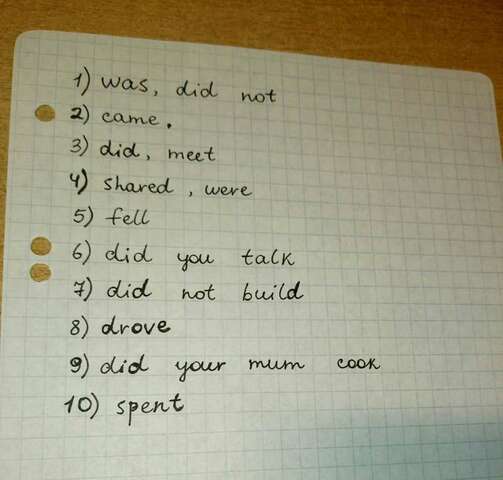 1) was, did not
2) came.
3) did, meet
4) shared, were
5) fell
6) did you talk
7) did not build
8) drove
9) did your mum cook
10) spent